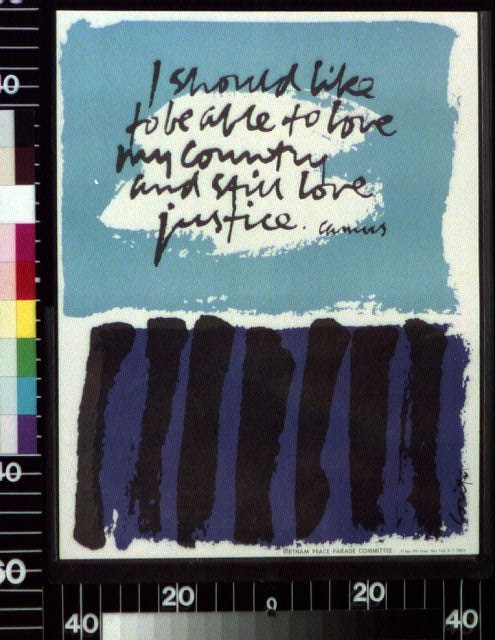 I should like
to be able to love
my country
and still love
justice. Camus
VIETNAM PEACE PARADE COMMITTEE
40
40
60
20
0
20
40
40